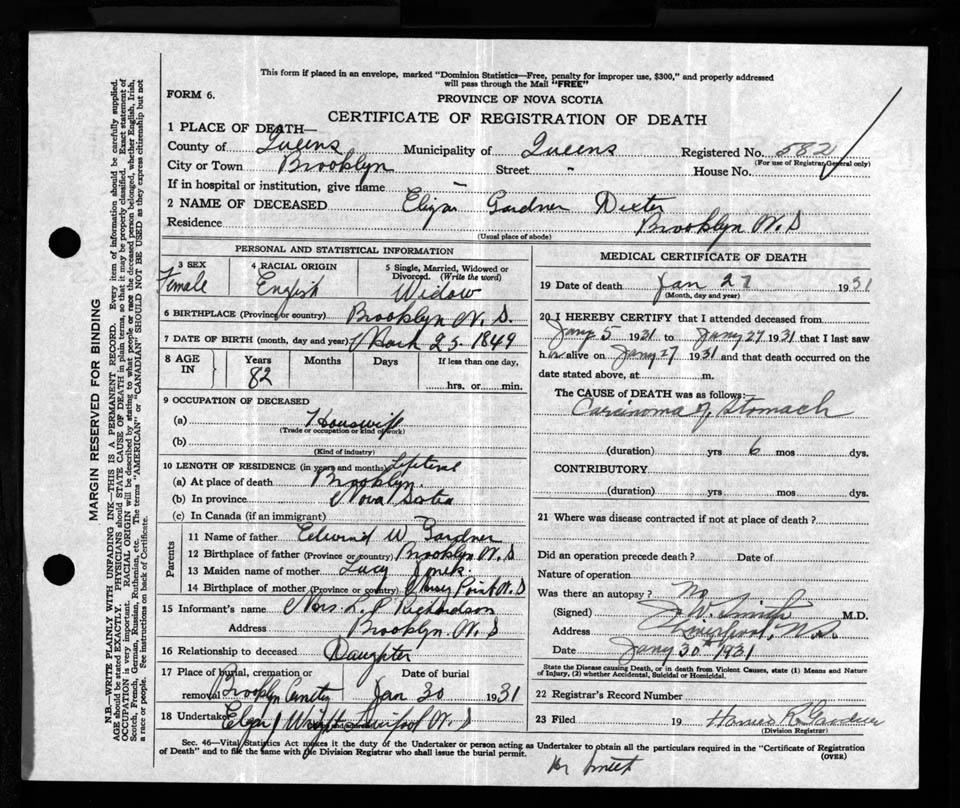 This form if placed in an envelope, marked "Dominion Statistics—Free, penalty for improper use, $300," and properly addressed
will pass through the Mail "FREE"
FORM 6.
PROVINCE OF NOVA SCOTIA
CERTIFICATE OF REGISTRATION OF DEATH
1 PLACE OF DEATH—
County of Queens Municipality of Queens Registered No. 582
(For use of Registrar General only)
City or Town Brooklyn Street " House No.
If in hospital or institution, give name —
2 NAME OF DECEASED Eliza Gardner Dexter
Residence Brooklyn N.S
(Usual place of abode)
PERSONAL AND STATISTICAL INFORMATION
3 SEX Female
4 RACIAL ORIGIN English
5 Single, Married, Widowed or Divorced. (Write the word) Widow
6 BIRTHPLACE (Province or country) Brooklyn N.S.
7 DATE OF BIRTH (month, day and year) March 25 1849
8 AGE IN Years 82 Months Days If less than one day, hrs. or min.
9 OCCUPATION OF DECEASED
(a) Houswife
(Trade or occupation or kind of work)
(b)
(Kind of industry)
10 LENGTH OF RESIDENCE (in years and months) Lifetime
(a) At place of death Brooklyn.
(b) In province Nova Scotia
(c) In Canada (if an immigrant)
Parents
11 Name of father Edwind W Gardner
12 Birthplace of father (Province or country) Brooklyn N.S
13 Maiden name of mother Lucy
14 Birthplace of mother (Province or country) Point N.S
15 Informant's name Mrs. L. P Richardson
Address Brooklyn N.S
16 Relationship to deceased Daughter
17 Place of burial, cremation or removal Brooklyn Date of burial Jan 30 1931
18 Undertaker Wright Liverpool N.S
MEDICAL CERTIFICATE OF DEATH
19 Date of death Jan 27 1931
(Month, day and year)
20 I HEREBY CERTIFY that I attended deceased from
Jany 5 1931 to Jany 27 1931 that I last saw
h alive on Jany 27 1931 and that death occurred on the
date stated above, at m.
The CAUSE of DEATH was as follows:
Carcinoma of Stomach
(duration) yrs 6 mos dys.
CONTRIBUTORY
(duration) yrs. mos. dys.
21 Where was disease contracted if not at place of death?
Did an operation precede death? Date of
Nature of operation
Was there an autopsy? No
(Signed) J. W. Smith M.D.
Address Liverpool, N.S.
Date Jany 30th 1931
State the Disease causing Death, or in death from Violent Causes, state (1) Means and Nature
of Injury, (2) whether Accidental, Suicidal or Homicidal.
22 Registrar's Record Number
23 Filed 19 R. Gardner
(Division Registrar)
Sec. 46—Vital Statistics Act makes it the duty of the Undertaker or person acting as Undertaker to obtain all the particulars required in the "Certificate of Registration
of Death" and to file the same with the Division Registrar who shall issue the burial permit.
(OVER)
MARGIN RESERVED FOR BINDING
N.B.—WRITE PLAINLY WITH UNFADING INK—THIS IS A PERMANENT RECORD. Every item of information should be carefully supplied.
AGE should be stated EXACTLY. PHYSICIANS should STATE CAUSE OF DEATH in plain terms, so that it may be properly classified. Exact statement of
OCCUPATION is very important. RACIAL ORIGIN will be described by stating to what people or race the deceased person belonged, whether English, Irish,
Scotch, French, German, Russian, Ruthenian, etc. The terms "AMERICAN" or "CANADIAN" SHOULD NOT BE USED as they express citizenship but not
a race or people. See instructions on back of Certificate.